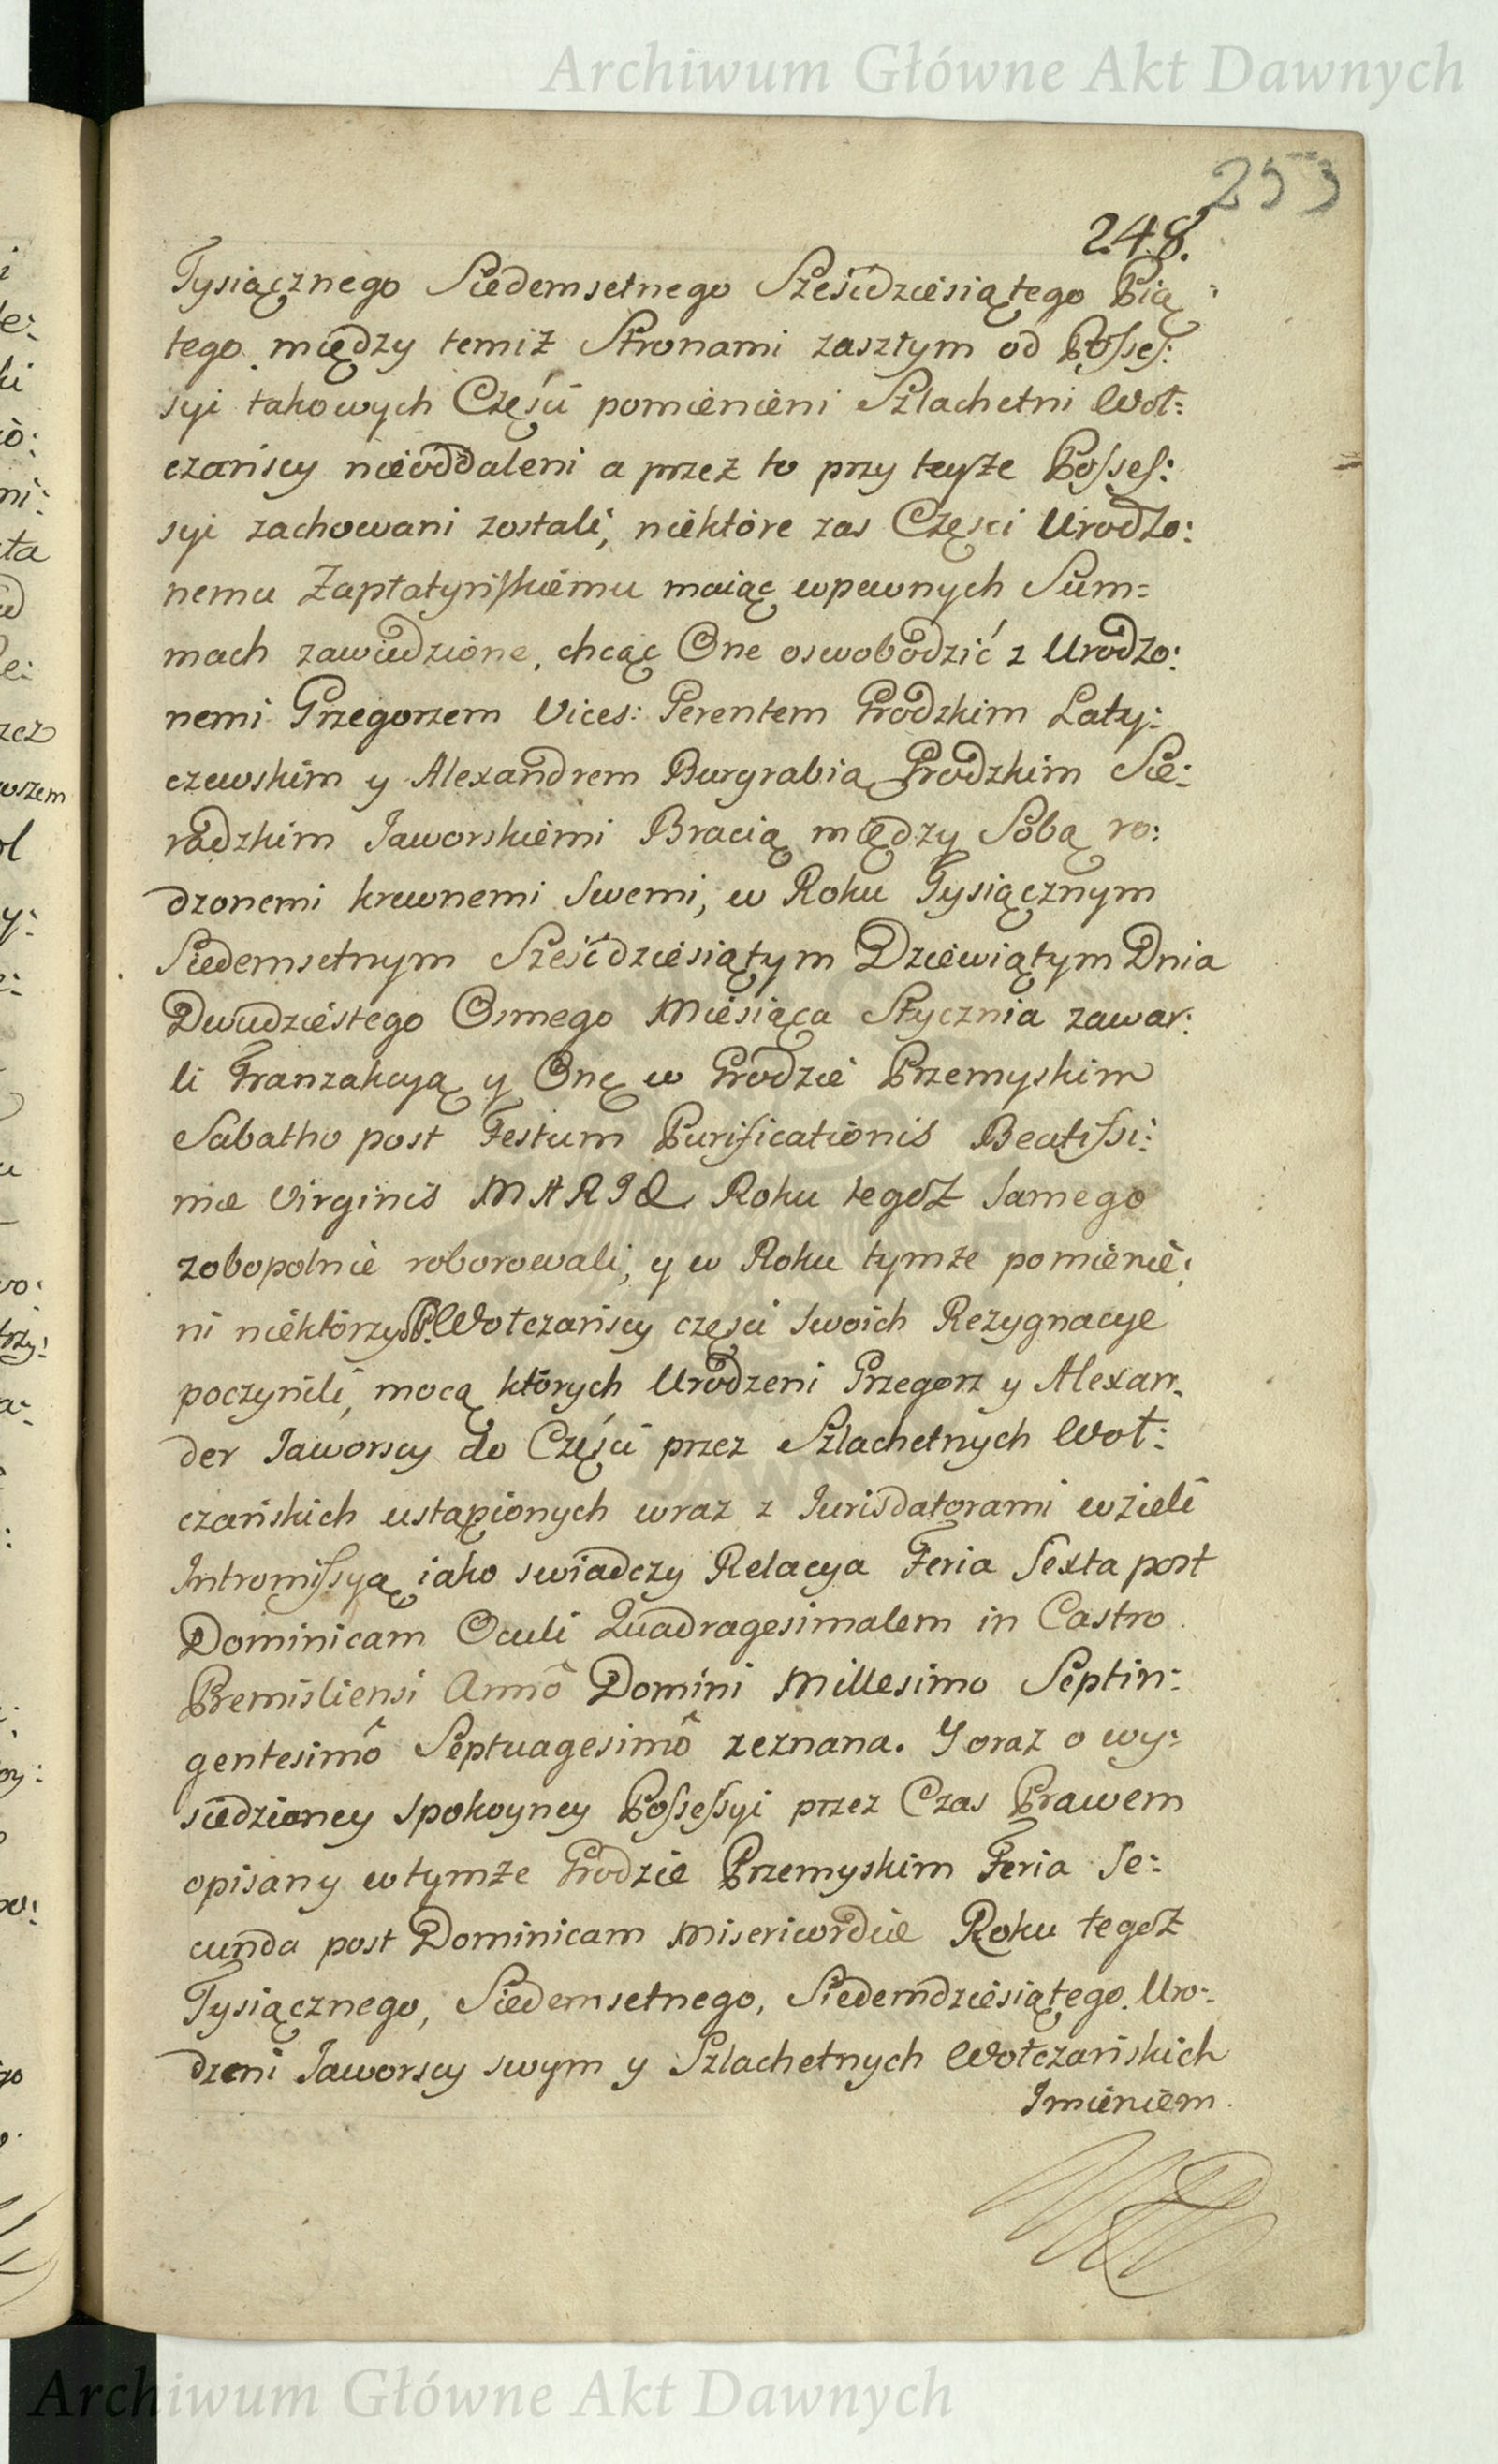 Archiwum Główne Akt Dawnych
253
248.
Tysiącznego Siedemsetnego Sześćdziesiątego Pią:
tego między temiż Stronami zaszłym od Posses:
syi takowych Części pomienieni Szlachetni Woł:
czańscy nieoddaleni a przez to przy teyże Posses:
syi zachowani zostali, niektóre zas Częsci Urodzo:
nemu Zapłatyńskiemu maiąc wpewnych Sum=
mach zawiedzione, chcąc One oswobodzić z Urodzo:
nemi Grzegorzem Vices: Gerentem Grodzkim Laty:
czewskim y Alexandrem Burgrabią Grodzkim Sie:
radzkim Jaworskiemi Bracią między Sobą ro:
dzonemi krewnemi Swemi, w Roku Tysiącznym
Siedemsetnym Sześćdziesiątym Dziewiątym Dnia
Dwudziestego Osmego Miesiąca Stycznia zawar:
li Tranzakcyą y Onę w Grodzie Przemyskim
Sabatho post Festum Purificationis Beatissi:
mæ Virginis MARIÆ Roku tegoż Samego
zobopolnie roborowali, y w Roku tymże pomienie:
ni niektórzy P. Wołczańscy części swoich Rezygnacye
poczynili, mocą których Urodzeni Grzegorz y Alexan:
der Jaworscy do Części przez Szlachetnych Woł:
czańskich ustąpionych wraz z Jurisdatorami wzieli
Intromissyą iako swiadczy Relacya Feria Sexta post
Dominicam Oculi Quadragesimalem in Castro
Premisliensi Annô Domini Millesimo Septin:
gentesimô Septuagesimô zeznana. Y oraz o wy:
siedzioney spokoyney Possessyi przez Czas Prawem
opisany wtymże Grodzie Przemyskim Feria Se:
cunda post Dominicam Misericordiæ Roku tegoż
Tysiącznego, Siedemsetnego, Siedemdziesiątego. Uro:
dzeni Jaworscy swym y Szlachetnych Wołczańskich
Imieniem.
Archiwum Główne Akt Dawnych